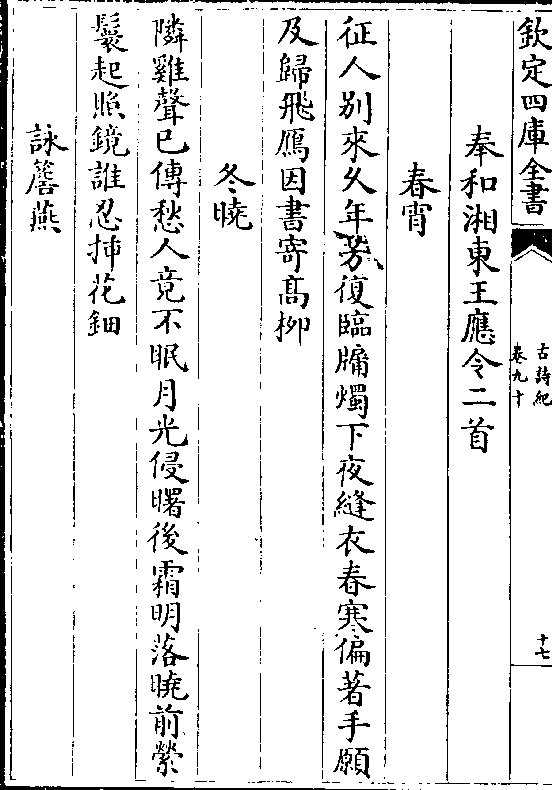 欽定四庫全書
古詩紀
卷九十
十七
奉和湘東王應令二首
春宵
征人別來久年芳復臨牖燭下夜縫衣春寒偏著手願
及歸飛鴈因書寄高柳
冬曉
隣雞聲已傳愁人竟不眠月光侵曙後霜明落曉前縈
鬟起照鏡誰忍插花鈿
詠簷燕